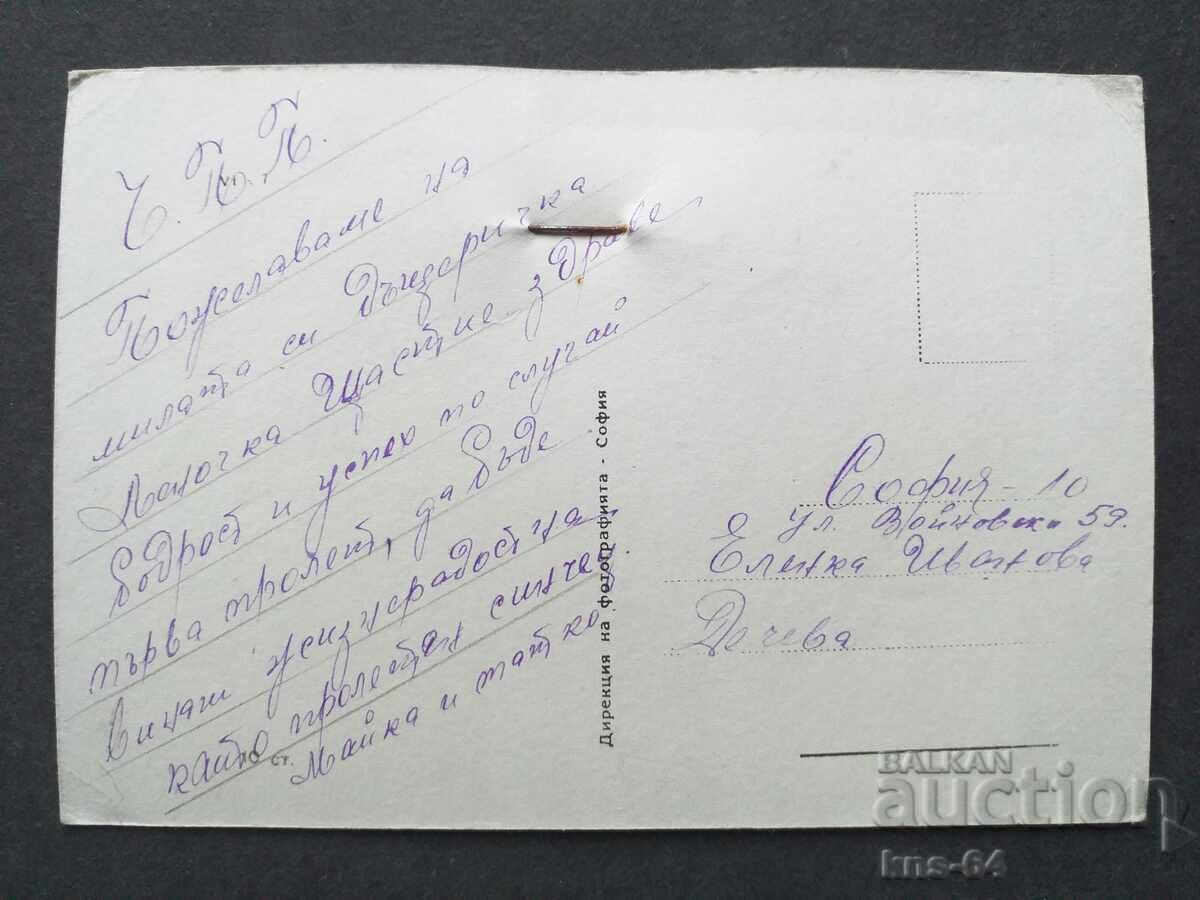 Ч. П. П.
Пожелаваме на
милата си дъщеричка
щастие здраве
бодрост и успех по случай
първа пролет, да бъде
винаги жизнерадостна
като пролетен синчец
Майка и татко
10 ст.
Дирекция на фотографията - София
София - 10
ул. Войновски 59.
Еленка Иванова
Дечева
BALKAN
auction
kns-64